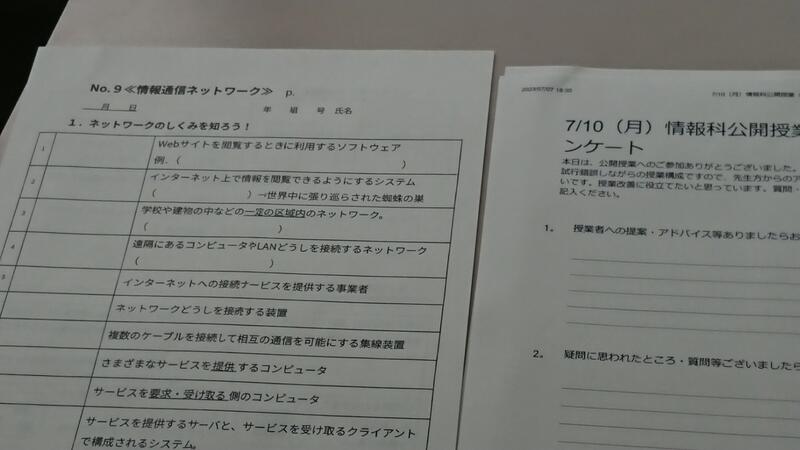 No. 9≪情報通信ネットワーク≫ p.
月 日 年 組 号 氏名
1．ネットワークのしくみを知ろう！
1 Webサイトを閲覧するときに利用するソフトウェア
例．( )
2 インターネット上で情報を閲覧できるようにするシステム
( ) →世界中に張り巡らされた蜘蛛の巣
3 学校や建物の中などの一定の区域内のネットワーク。
( )
4 遠隔にあるコンピュータやLANどうしを接続するネットワーク
( )
5 インターネットへの接続サービスを提供する事業者
ネットワークどうしを接続する装置
複数のケーブルを接続して相互の通信を可能にする集線装置
さまざまなサービスを提供するコンピュータ
サービスを要求・受け取る側のコンピュータ
サービスを提供するサーバと、サービスを受け取るクライアント
で構成されるシステム。
2023/07/07 18:35
7/10（月）情報科公開授業
7/10（月）情報科公開授業
ンケート
本日は、公開授業へのご参加ありがとうございました。
試行錯誤しながらの授業構成ですので、先生方からのア
いです。授業改善に役立てたいと思っています。質問・
記入ください。
1. 授業者への提案・アドバイス等ありましたらお
2. 疑問に思われたところ・質問等ございましたら